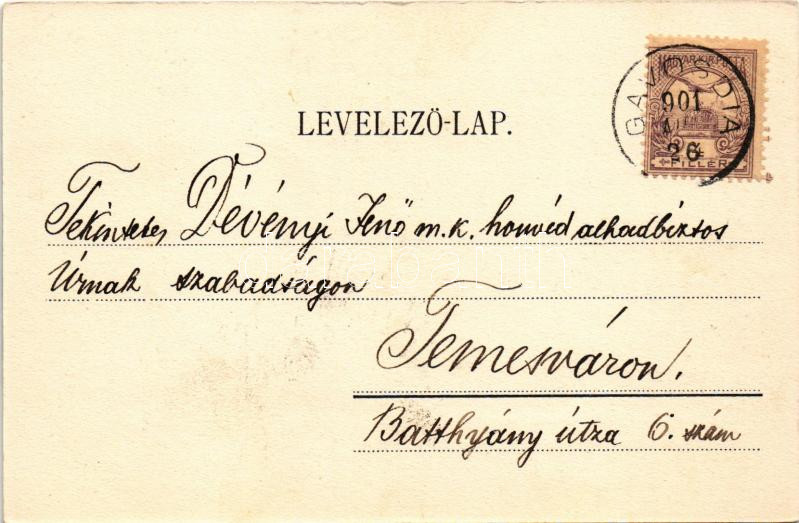 MAGYAR KIR. POSTA
GAVOSDIA
901
26
FILLÉR
LEVELEZŐ-LAP.
Tekintetes Dévényi Jenő m.k. honvéd alhadbiztos
Úrnak szabadságon
Temesváron.
Batthyány útza 6. szám